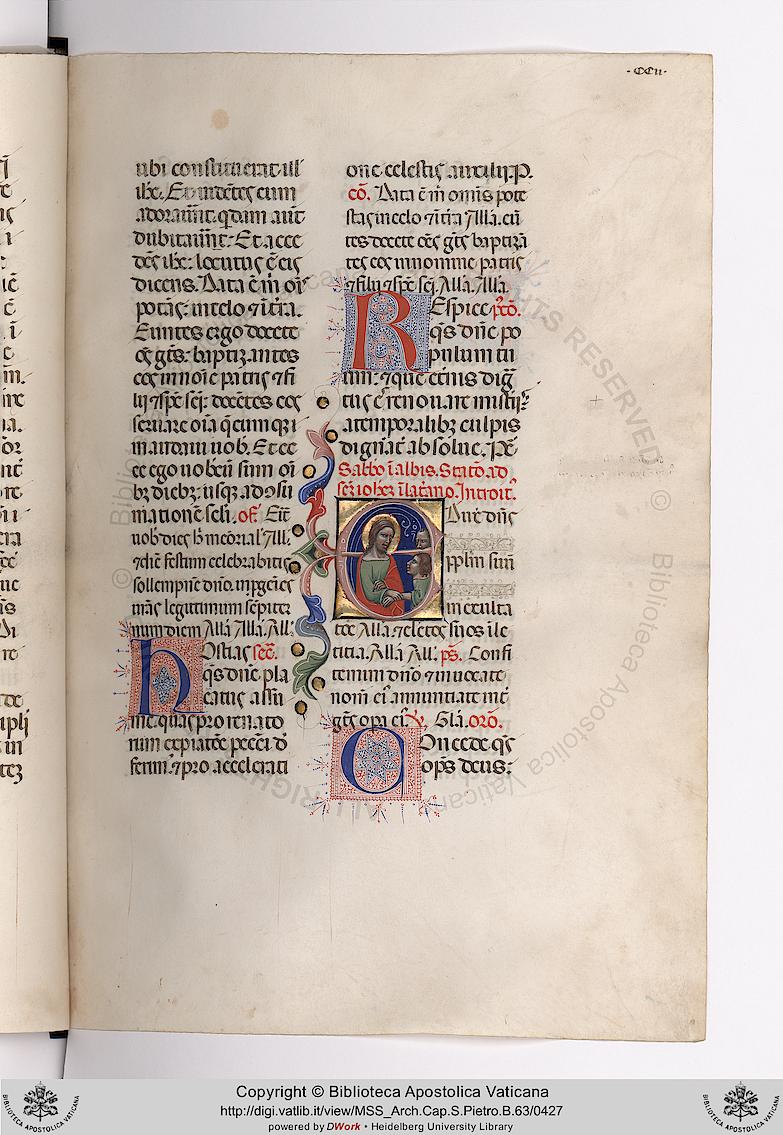 ·CCii·
ubi constituerat ill
ihc. Et videtes eum
adoraut. qdam aut
dubitaut. Et acce
des ihc: locutus e eis
dicens. Data e m ois
potas: in celo et i tra.
Euntes ergo docete
oes gtes: baptizantes
eos in noie patris et fi
lij et sps sci: docetes eos
servare oia quecumq3
mandavi vob. Et ec
ce ego vobcu sum oi
b3 dieb3: usq3 ad gsu
matione scli. of. Erit
vob dies h memorial All.
et die festum celebrabitis
sollempne dno. in pgeies
vras legittimum sepiter
num diem Alla Alla. All.
hostias sec.
qs dne pla
catus assu
me. quas pro renato
rum expiatoe pecci d
ferim. et pro accelerati
one celestis auxilij. P.
co. Data e m omis pote
stas in celo et i tra Alla. eu
tes docete oes gtes baptiza
tes eos in nomine patris
et filij et sps sci. Alla. Alla.
Respice pco.
qs dne po
pulum tu
um: et que etnis dig
tus es renovare mistijs
a temporalib3 culpis
dignat absolve. P
Sabbo i albis. Stato ad
scm iohem i latano. Introit.
Eduxit dns
pplm suu
in exulta
toe Alla et eletos suos i le
titia. Alla All. ps. Confi
temini dno et invocate
nom ei annuntiate int
gtes opa ei. V. Gla. oro.
Concede qs
ops deus:
Copyright © Biblioteca Apostolica Vaticana
http://digi.vatlib.it/view/MSS_Arch.Cap.S.Pietro.B.63/0427
powered by DWork • Heidelberg University Library
BIBLIOTECA APOSTOLICA VATICANA
BIBLIOTECA APOSTOLICA VATICANA